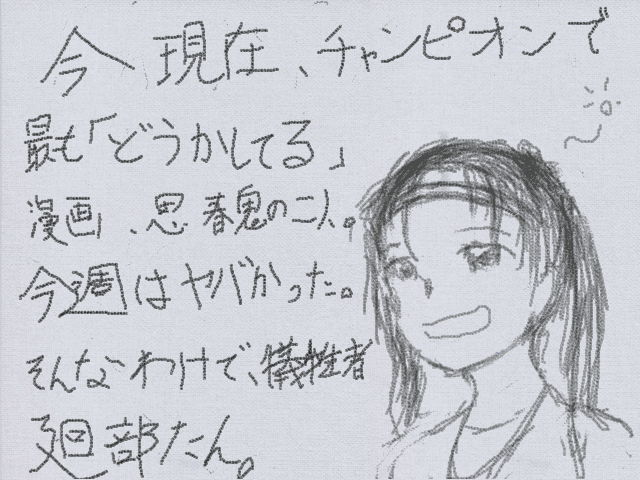 今現在、チャンピオンで
最も「どうかしてる」
漫画、思春鬼の二人。
今週はヤバかった。
そんなわけで、犠牲者
廻部たん。